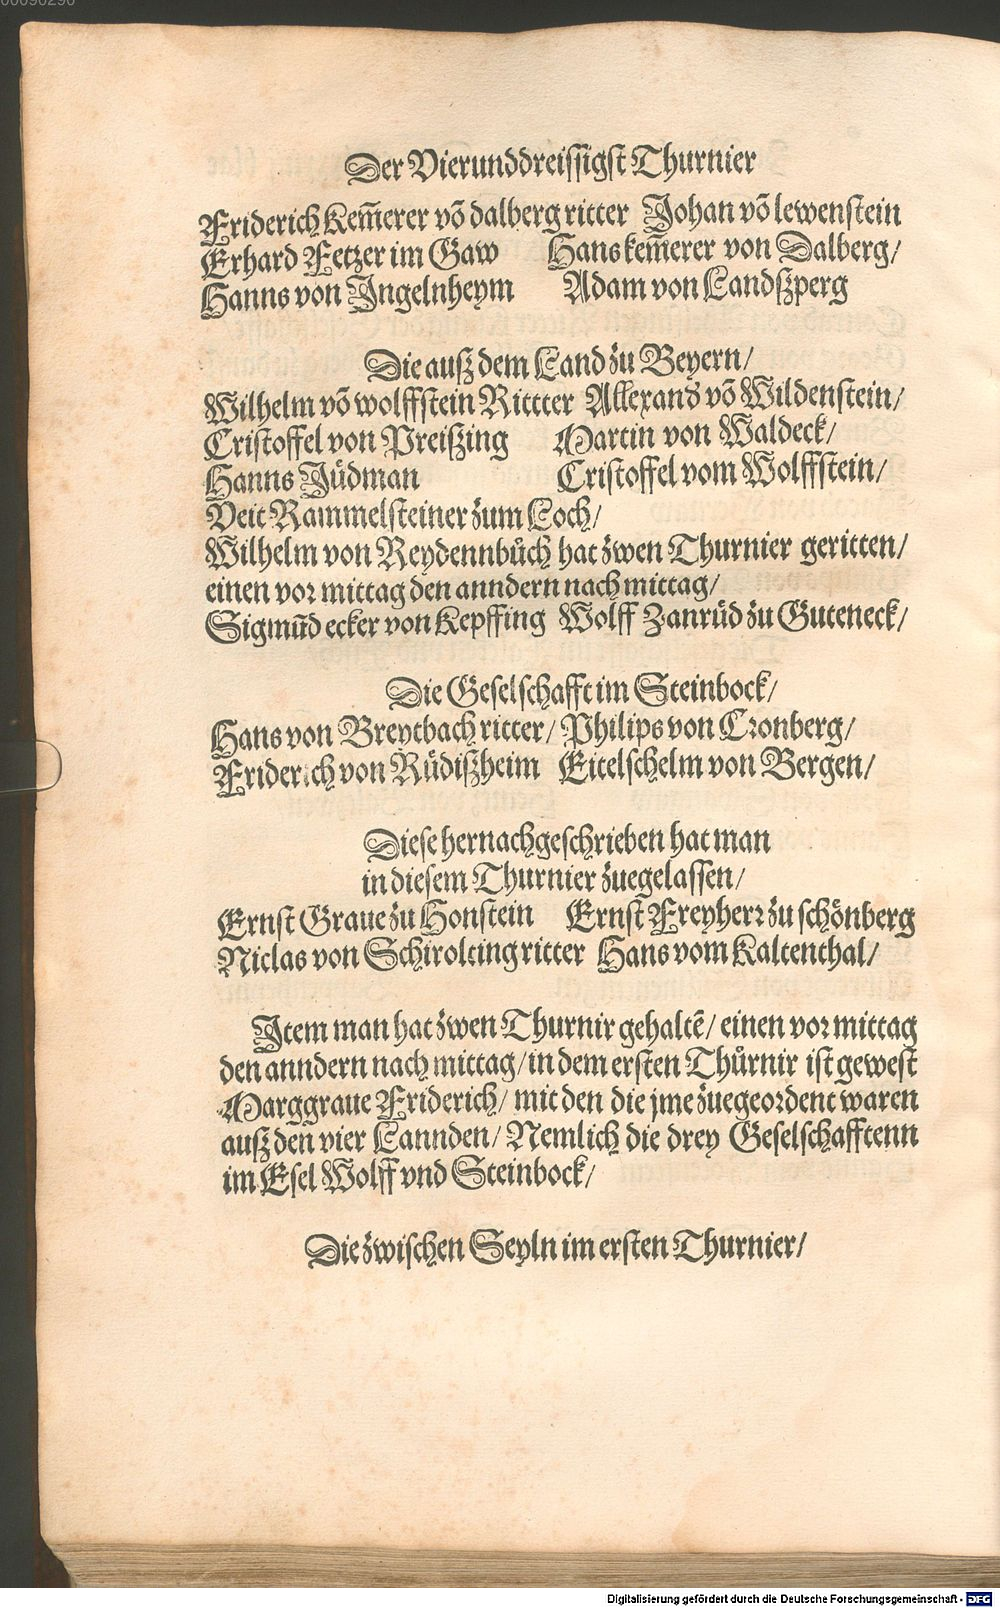 00090296
Der Vierunddreissigst Thurnier
Friderich Kem̄erer vō dalberg ritter Johan vō lewenstein
Erhard Fetzer im Gaw Hans kem̄erer von Dalberg/
Hanns von Jngelnheym Adam von Landßperg
Die auß dem Land zu Beyern/
Wilhelm vō wolffstein Rittter Allexand's vō Wildenstein/
Cristoffel von Preißing Martin von Waldeck/
Hanns Jüdman Cristoffel vom Wolffstein/
Veit Rammelsteiner zum Loch/
Wilhelm von Reydennbůch hat zwen Thurnier geritten/
einen vor mittag den anndern nach mittag/
Sigmūd ecker von Kepffing Wolff Zanrüd zu Guteneck/
Die Geselschafft im Steinbock/
Hans von Breytbach ritter/ Philips von Cronberg/
Friderich von Rüdißheim Eitelschelm von Bergen/
Diese hernachgeschrieben hat man
in diesem Thurnier zuegelassen/
Ernst Graue zu Honstein Ernst Freyherr zu schönberg
Niclas von Schirolting ritter Hans vom Kaltenthal/
Jtem man hat zwen Thurnir gehaltē/ einen vor mittag
den anndern nach mittag/ in dem ersten Thůrnir ist gewest
Marggraue Friderich/ mit den die jme zuegeordent waren
auß den vier Lannden/ Nemlich die drey Geselschafftenn
im Esel Wolff vnd Steinbock/
Die zwischen Seyln im ersten Thurnier/
Digitalisierung gefördert durch die Deutsche Forschungsgemeinschaft - DFG